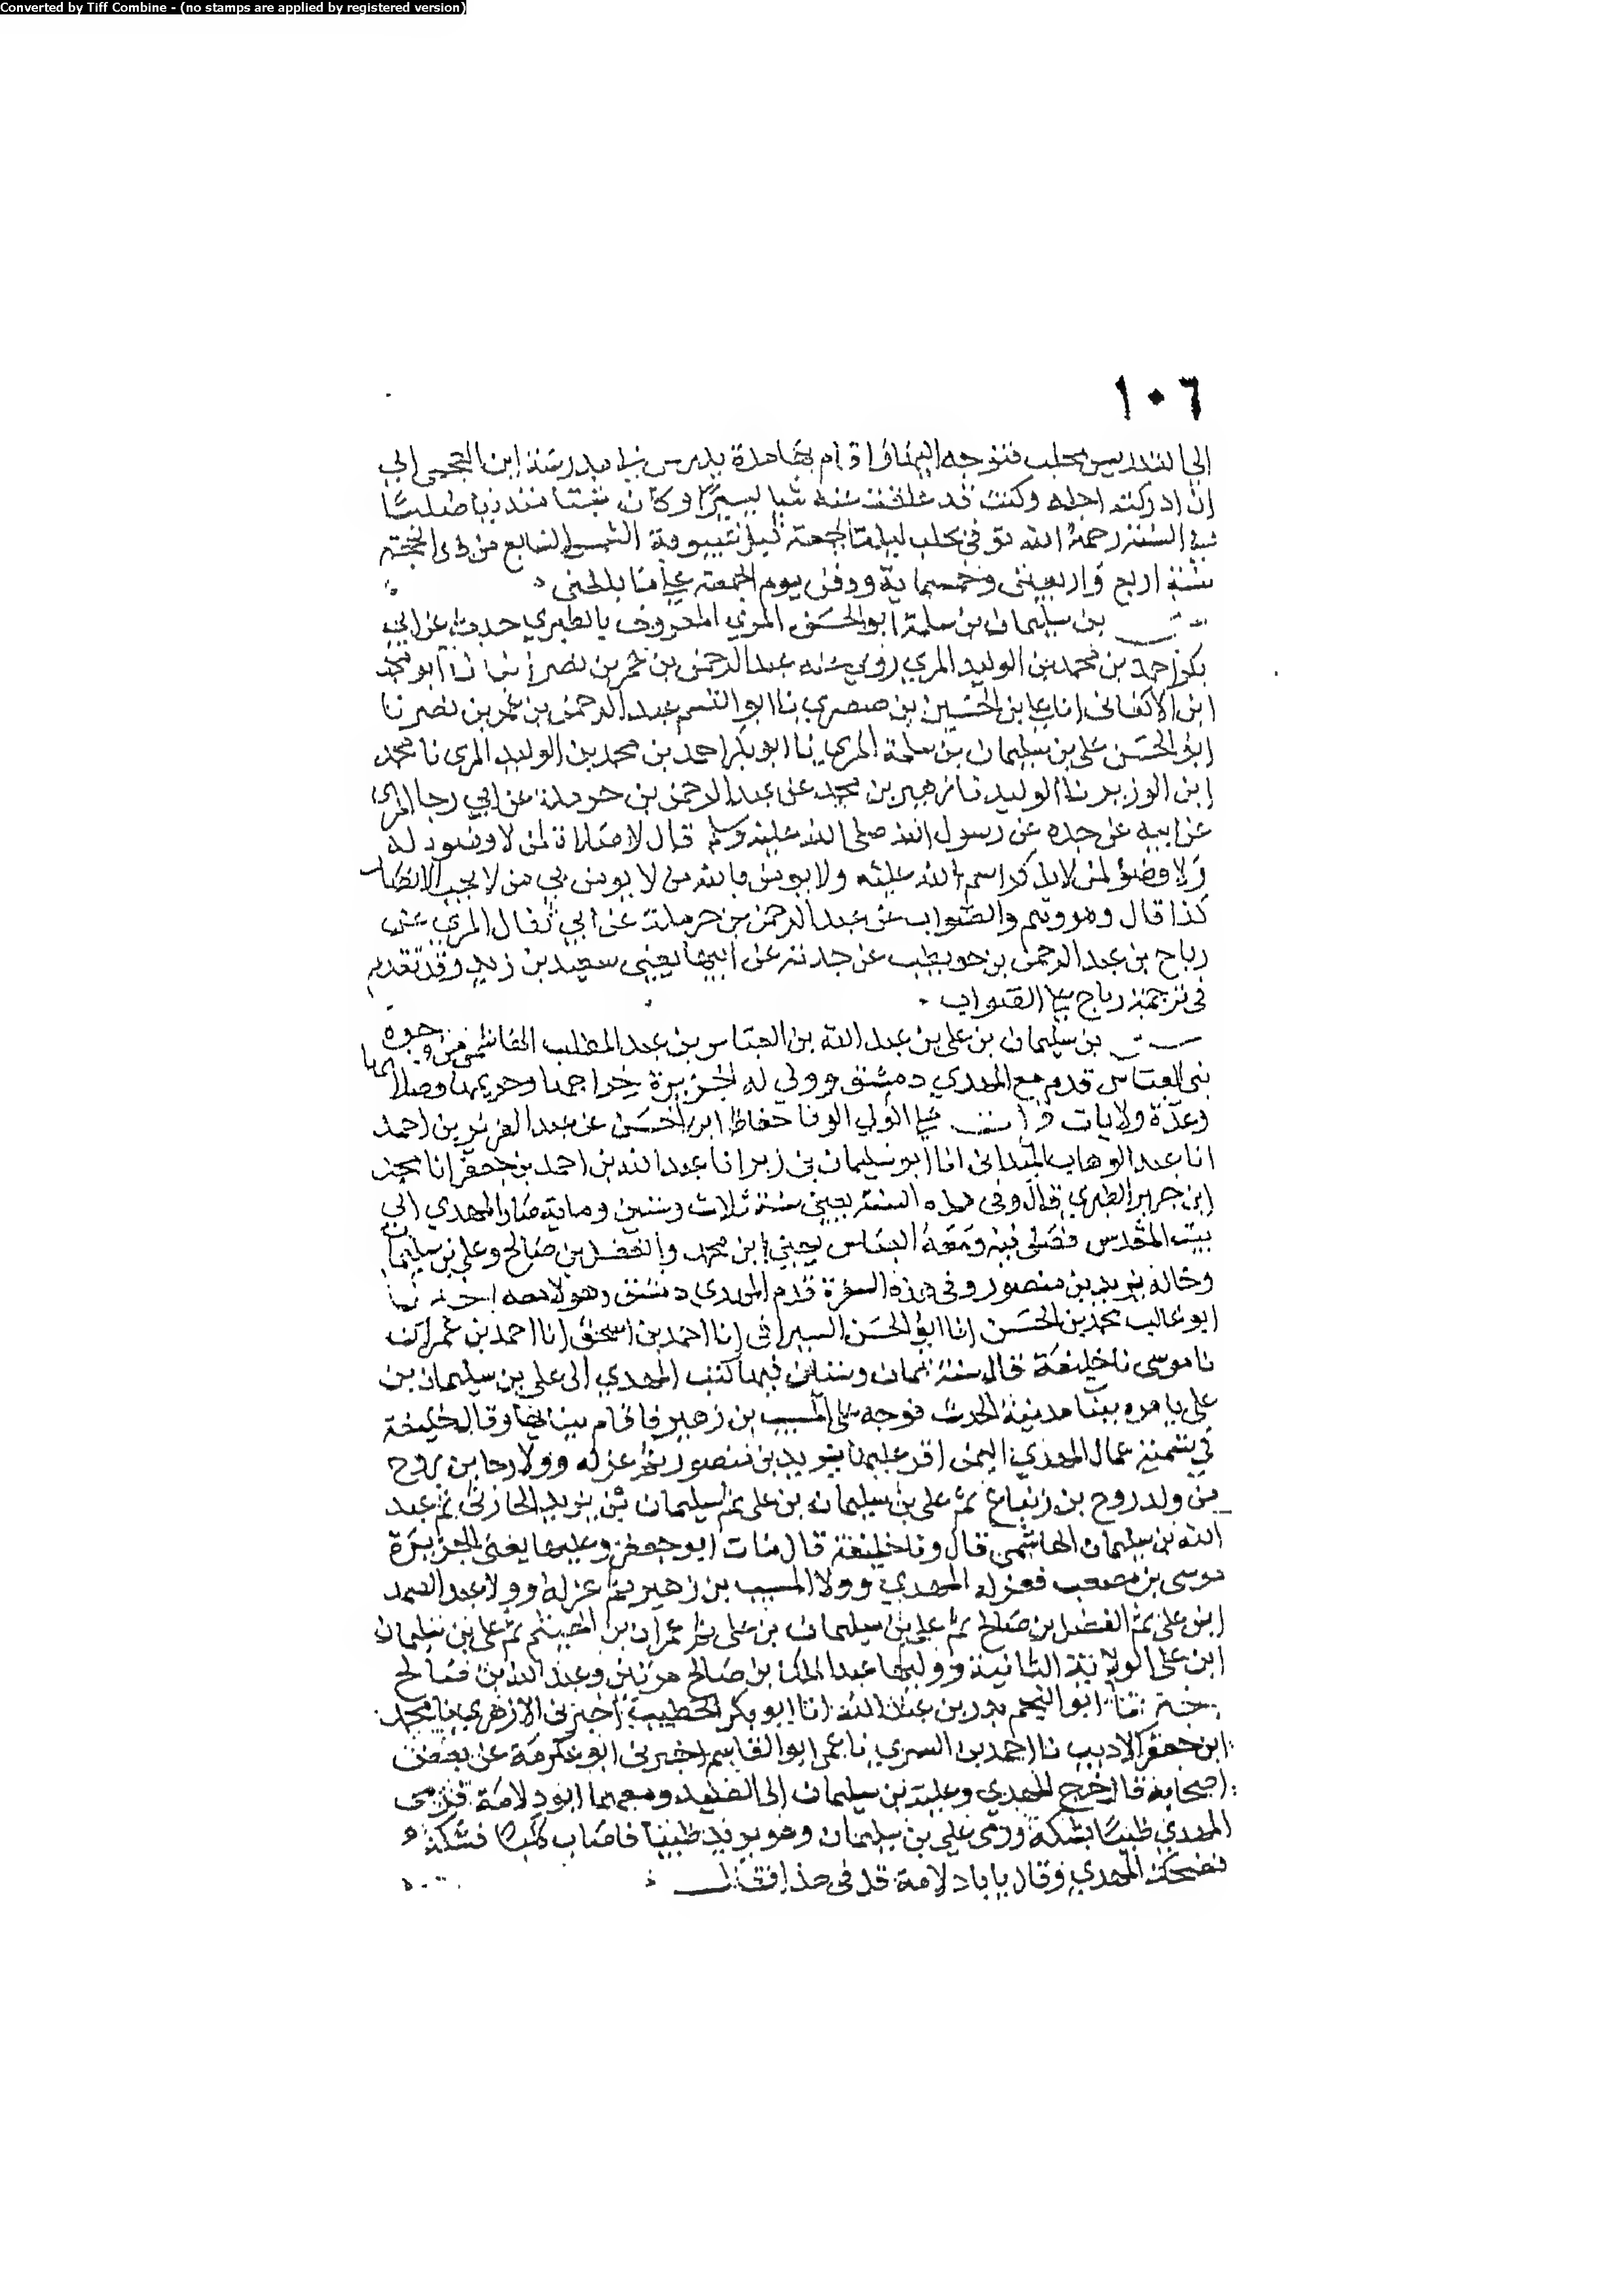 Converted by Tiff Combine - (no stamps are applied by registered version)
١٠٦
الى التدريس بحلب فتوجه اليها واقام بها مدة يدرس بها بمدرسة ابن العجمي الى
ان ادركه اجله وكنت قد علقت عنه شيا يسيرا وكان ثبتا متدينا صلبا
في السنة رحمه الله توفي بحلب ليلة الجمعة السابع من ذي الحجة
سنة اربع واربعين وخمسماية ودفن يوم الجمعة
بن سليمان بن سلمة ابو الحسن المري المعروف بالطبري حدث عن ابي
بكر احمد بن محمد بن الوليد المري روى عنه عبد الرحمن بن عمر بن نصر ابو محمد
ابن الاكفاني انا علي بن الحسين بن صصري نا ابو القسم عبد الرحمن بن عمر بن نصر نا
ابو الحسن علي بن سليمان بن سلمة المري نا ابو بكر احمد بن محمد بن الوليد المري نا محمد
ابن الوزير نا الوليد نا زهير بن محمد عن عبد الرحمن بن حرملة عن ابي رجا المري
عن ابيه عن جده عن رسول الله صلى الله عليه وسلم قال لا صلاة لمن لا وضو له
ولا وضو لمن لا يذكر اسم الله عليه ولا يومن بالله من لا يومن بي من لا يحب الانصار
كذا قال وهو وهم والصواب عن عبد الرحمن بن حرملة عن ابي ثفال المري عن
رباح بن عبد الرحمن بن حويطب عن جدته عن ابيها يعني سعيد بن زيد وقد تقدم
في ترجمة رباح على الصواب
بن سليمان بن علي بن عبد الله بن العباس بن عبد المطلب الهاشمي من وجوه
بني العباس قدم مع المهدي دمشق وولي له الجزيرة خراجها وحربها وصلاتها
وعدة ولايات على الوفا حفاظ ابن الحسن عن عبد العزيز بن احمد
انا عبد الوهاب الميداني انا ابو سليمان بن زبر انا عبد الله بن احمد بن جعفر انا محمد
ابن جرير الطبري قال وفي هذه السنة يعني سنة ثلاث وستين وماية صار المهدي الى
بيت المقدس فصلى فيه ومعه العباس يعني ابن محمد والفضل بن صالح وعلي بن سليمان
وخاله يزيد بن منصور وفي هذه السفرة قدم المهدي دمشق وهولا معه اخبرنا
ابو غالب محمد بن الحسن انا ابو الحسن السيرافي انا احمد بن اسحق انا احمد بن عمران
نا موسى نا خليفة قال سنة ثمان وستين فيها كتب المهدي الى علي بن سليمان بن
علي يامره ببنا مدينة الحدث فوجه علي المسيب بن زهير فاقام ببنايها وقال خليفة
في تسمية عمال المهدي اليمن اقر عليها يزيد بن منصور ثم عزله وولا رجا بن روح
من ولد روح بن زنباع ثم علي بن سليمان بن علي ثم سليمان بن يزيد الحارثي ثم عبد
الله بن سليمان الهاشمي قال ونا خليفة قال مات ابو جعفر وعليها يعني الجزيرة
موسى بن مصعب فعزله المهدي وولا المسيب بن زهير ثم عزله وولا عبد الصمد
ابن علي ثم الفضل بن صالح ثم علي بن سليمان بن علي ثم عمران بن الهيثم ثم علي بن سليمان
ابن علي الولاية الثانية ووليها عبد الملك بن صالح مرتين وعبد الله بن صالح
اخبرنا ابو النجم بدر بن عبد الله انا ابو بكر الخطيب اخبرني الازهري نا محمد
ابن جعفر الاديب نا احمد بن السري نا عمي ابو القاسم اخبرني ابو عكرمة عن بعض
اصحابه قال خرج المهدي وعلي بن سليمان الى الصيد ومعهما ابو دلامة فرمى
المهدي ظبيا بشكة ورمى علي بن سليمان وهو يريد ظبيا فاصاب كلبا فشكه
فضحك المهدي وقال يابا دلامة قل في هذا فقال